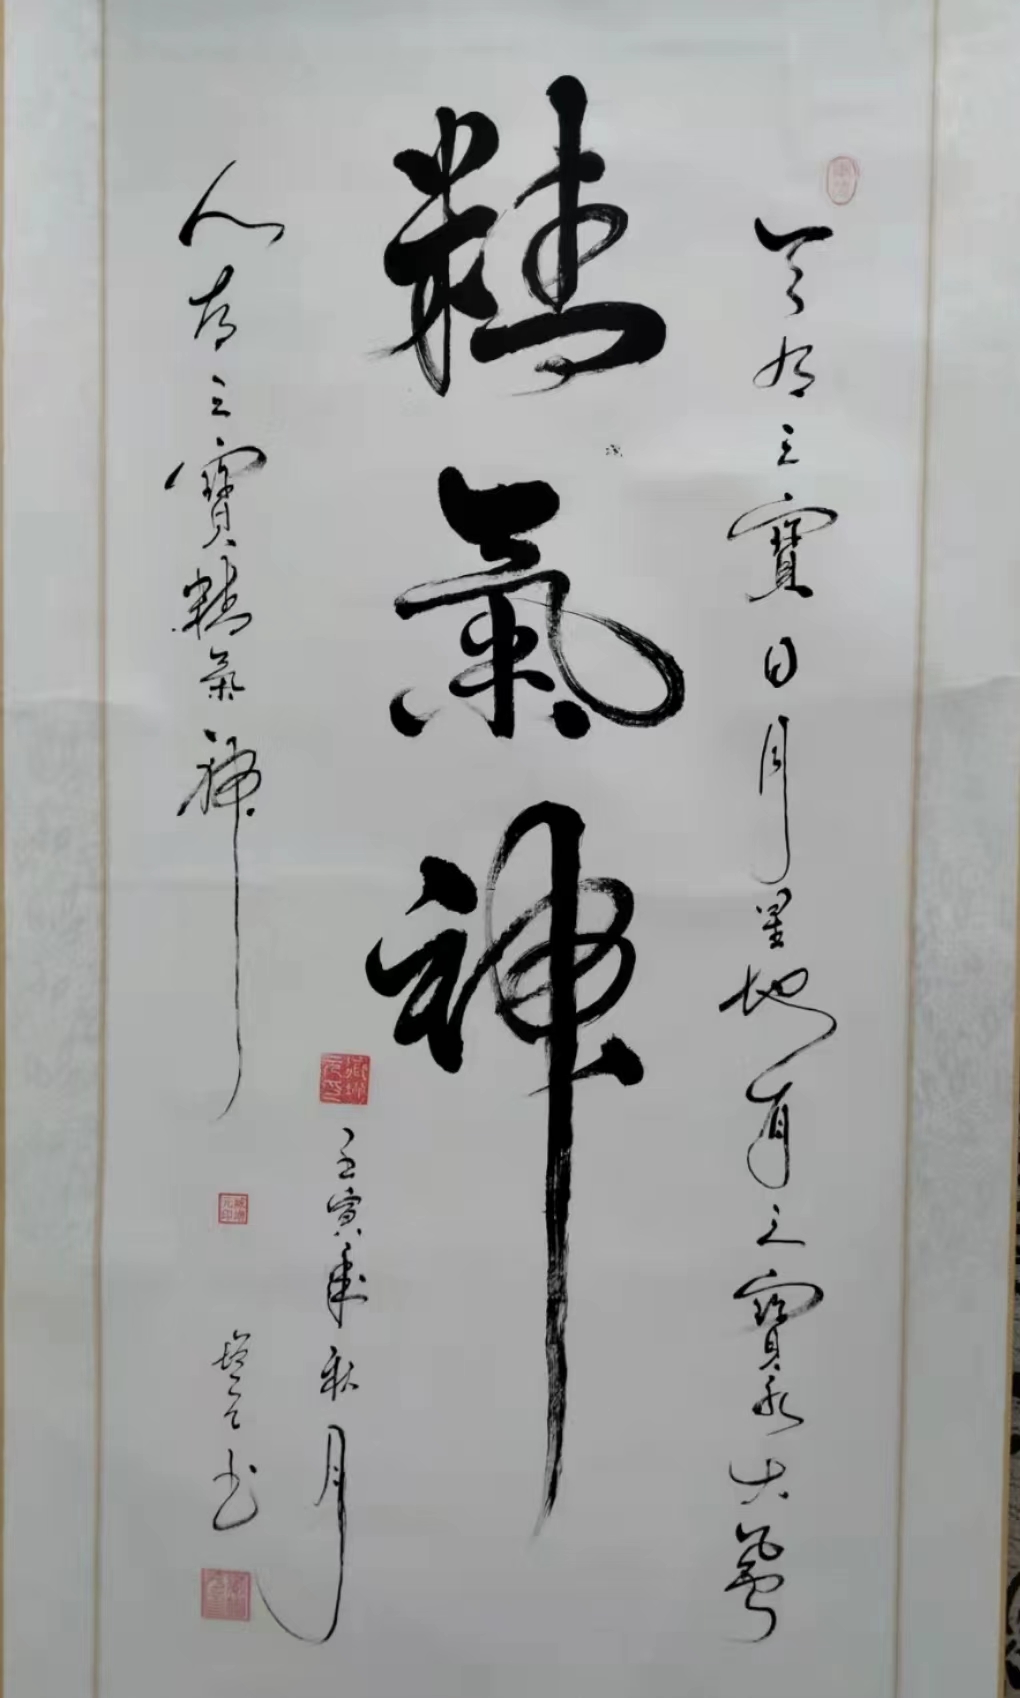 天有三寶日月星地有三寶水火風
精氣神
人有三寶精氣神
壬寅年秋月
培元书